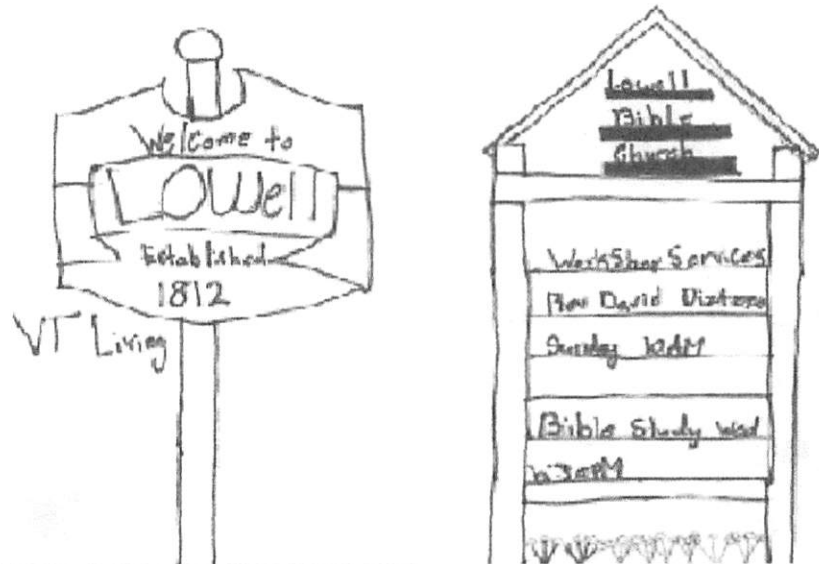 Welcome to
LOWell
Established
1812
VT Living
Lowell
Bible
Church
Services
Rev David
Sunday 10AM
Bible Study Wed
6:30PM